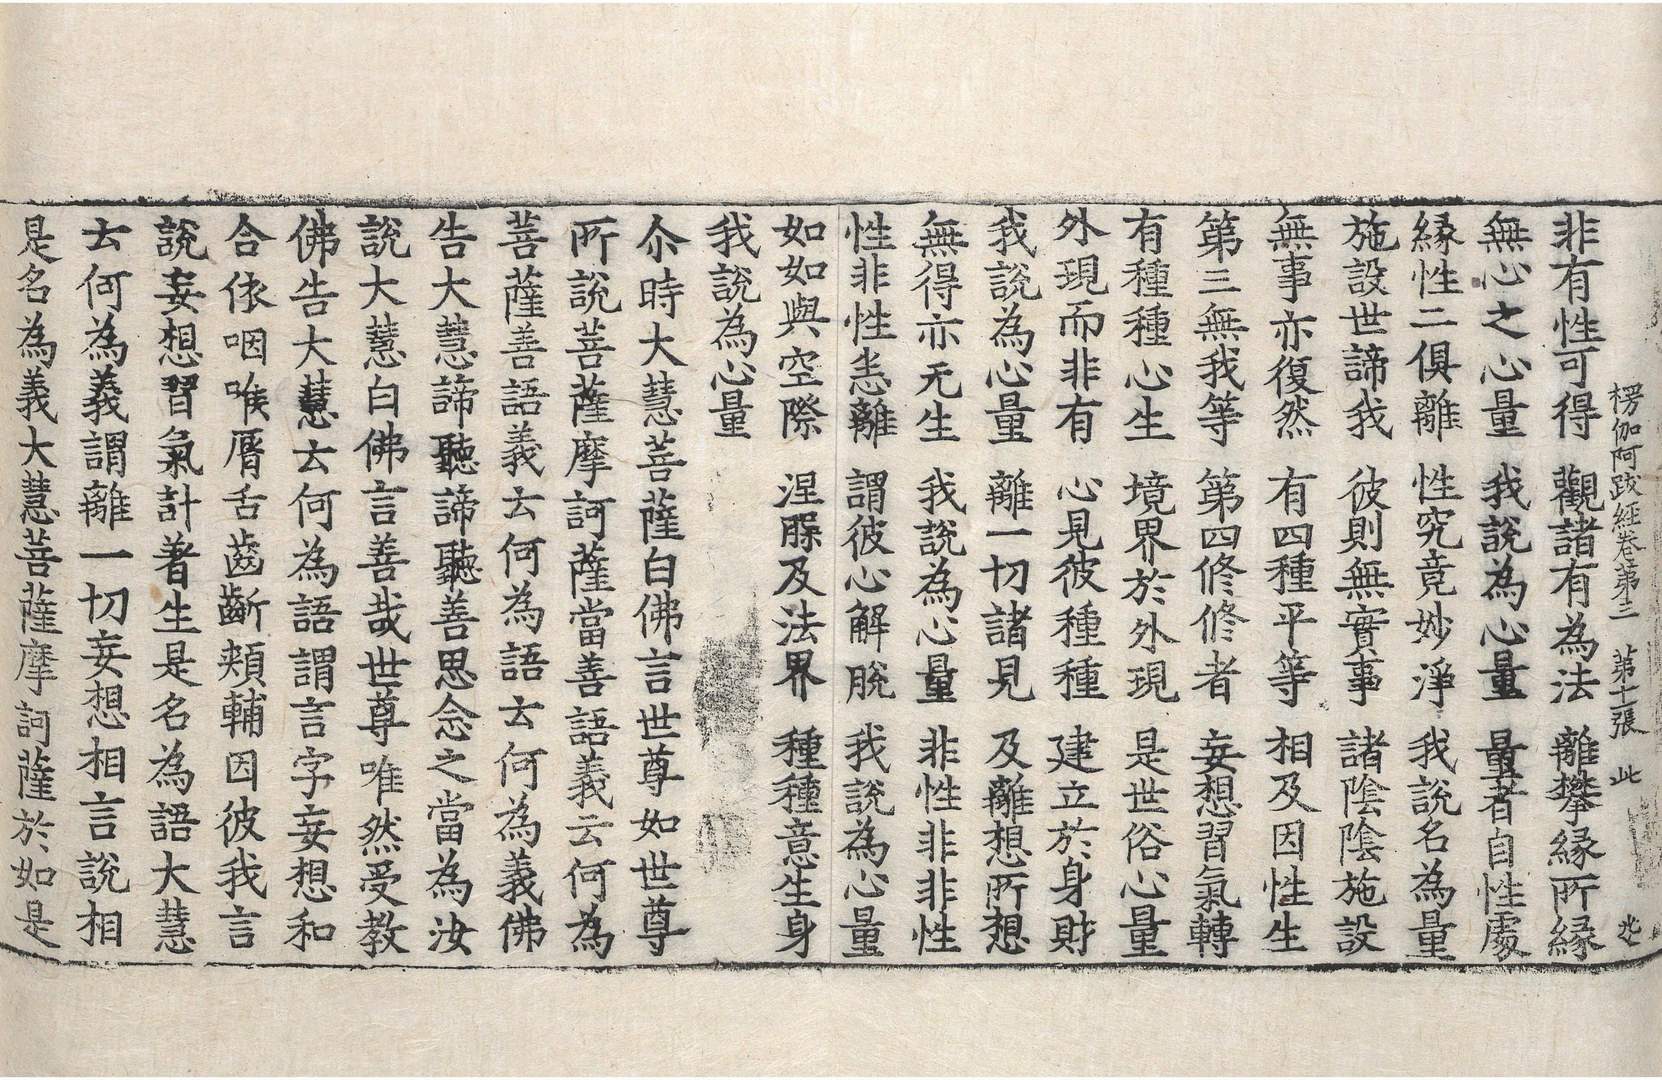 楞伽阿跋經卷第三　第十二張　此
非有性可得　觀諸有為法　離攀縁所縁
無心之心量　我說為心量　量者自性處
縁性二俱離　性究竟妙淨　我說名為量
施設世諦我　彼則無實事　諸陰陰施設
無事亦復然　有四種平等　相及因性生
第三無我等　第四修修者　妄想習氣轉
有種種心生　境界於外現　是世俗心量
外現而非有　心見彼種種　建立於身財
我說為心量　離一切諸見　及離想所想
無得亦无生　我說為心量　非性非非性
性非性悉離　謂彼心解脫　我說為心量
如如與空際　涅槃及法界　種種意生身
我說為心量
尒時大慧菩薩白佛言世尊如世尊
所說菩薩摩訶薩當善語義云何為
菩薩善語義云何為語云何為義佛
告大慧諦聽諦聽善思念之當為汝
說大慧白佛言善哉世尊唯然受教
佛告大慧云何為語謂言字妄想和
合依咽喉脣舌齒齗頰輔因彼我言
說妄想習氣計著生是名為語大慧
云何為義謂離一切妄想相言說相
是名為義大慧菩薩摩訶薩於如是